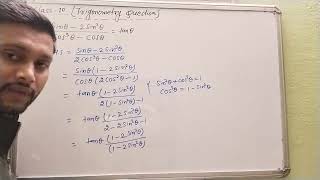 ass-10 (Trigonometry Question)
sinθ-2sin³θ / 2cos³θ-cosθ = tanθ
HS = sinθ-2sin³θ / 2cos³θ-cosθ
= sinθ(1-2sin²θ) / cosθ(2cos²θ-1)
= tanθ (1-2sin²θ) / 2(1-sin²θ)-1
sin²θ+cos²θ=1
cos²θ=1-sin²θ
= tanθ (1-2sin²θ) / 2-2sin²θ-1
= tanθ (1-2sin²θ) / (1-2sin²θ)